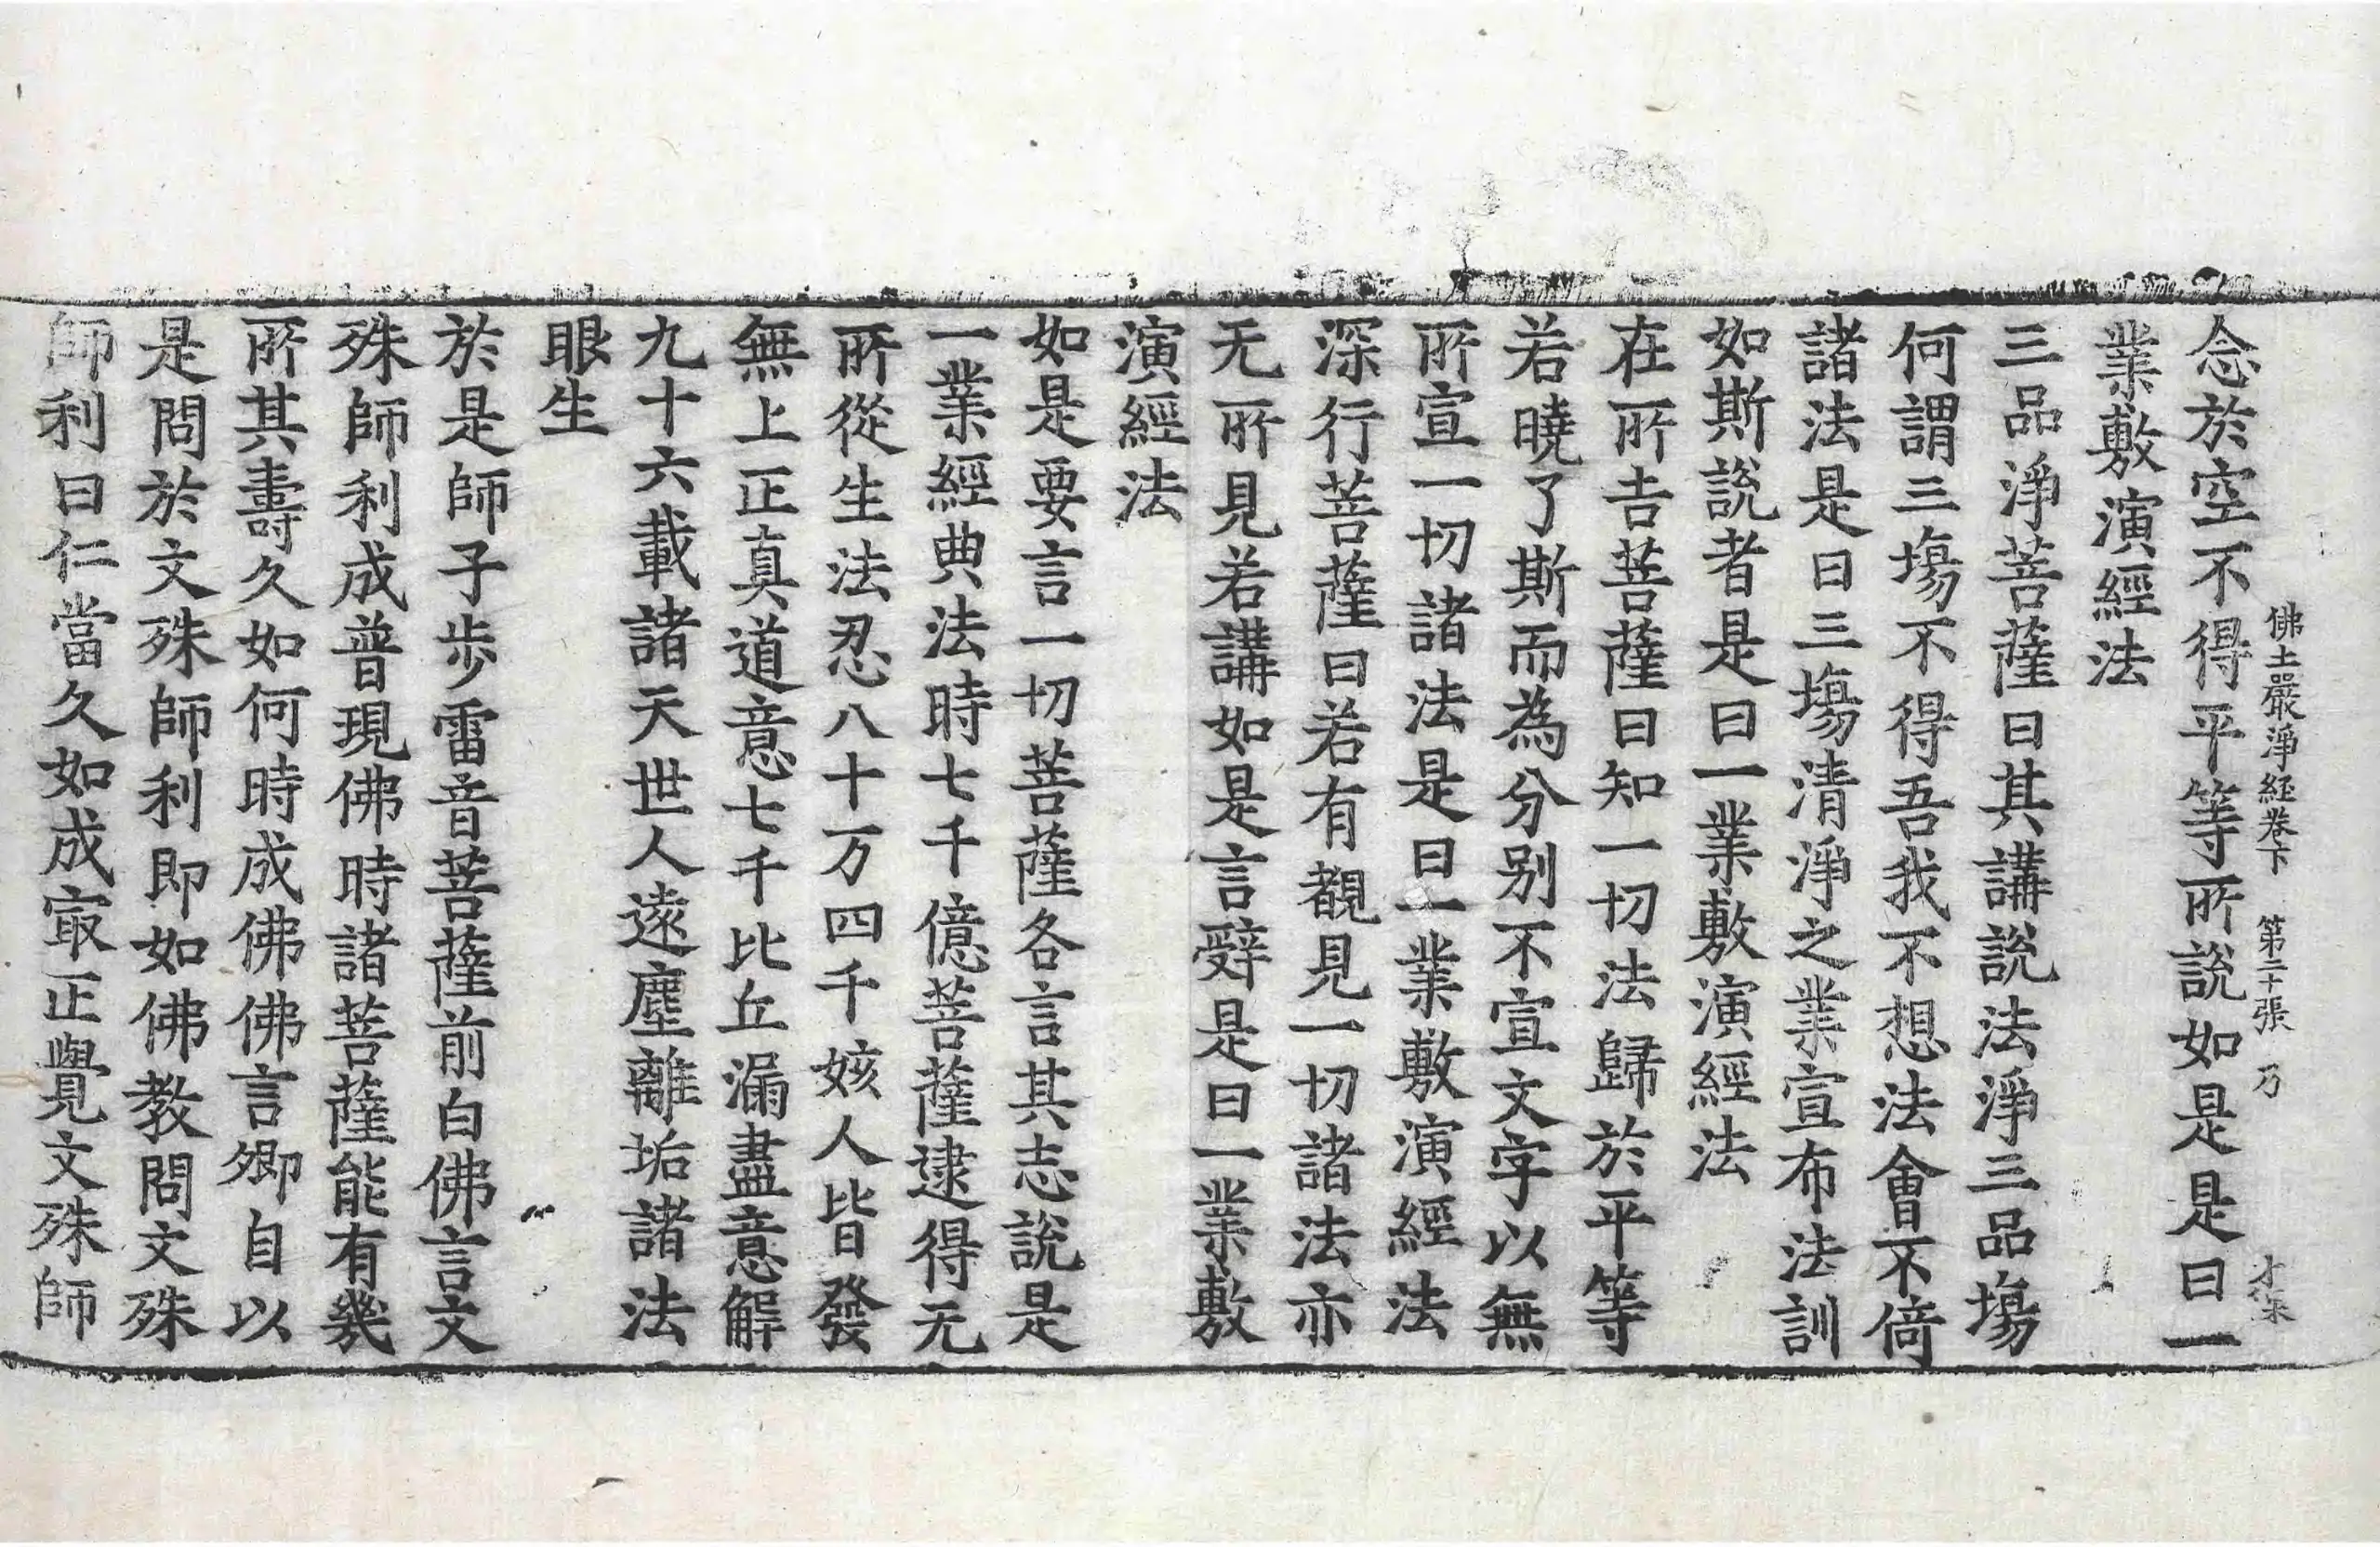 佛土嚴淨経卷下　第二十張　乃
念於空不得平等所說如是是曰一
業敷演經法
三品淨菩薩曰其講說法淨三品塲
何謂三塲不得吾我不想法會不倚
諸法是曰三塲清淨之業宣布法訓
如斯說者是曰一業敷演經法
在所吉菩薩曰知一切法歸於平等
若曉了斯而為分别不宣文字以無
所宣一切諸法是曰一業敷演經法
深行菩薩曰若有覩見一切諸法亦
无所見若講如是言辭是曰一業敷
演經法
如是要言一切菩薩各言其志說是
一業經典法時七千億菩薩逮得无
所從生法忍八十万四千姟人皆發
無上正真道意七千比丘漏盡意解
九十六載諸天世人遠塵離垢諸法
眼生
於是師子步雷音菩薩前白佛言文
殊師利成普現佛時諸菩薩能有幾
所其壽久如何時成佛佛言卿自以
是問於文殊師利即如佛教問文殊
師利曰仁當久如成㝡正覺文殊師